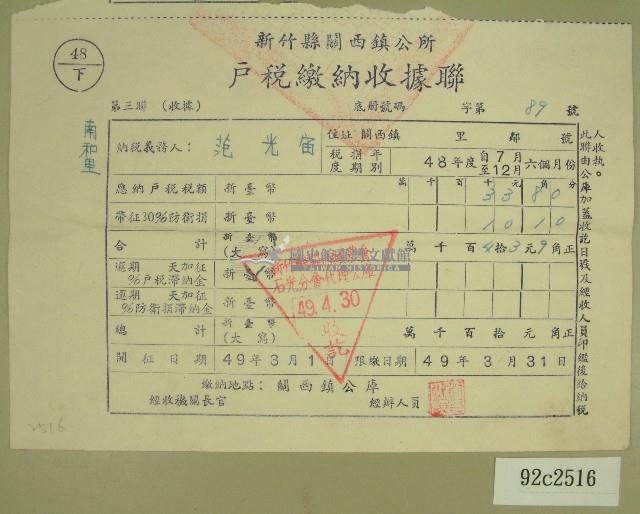 48
下
新竹縣關西鎮公所
戶稅繳納收據聯
第三聯 (收據) 底册號碼 字第 89 號
南和里
納稅義務人： 范光宙 住址 關西鎮 里 鄰 號
稅捐年度期別 48年度 自7月至12月 六個月份
萬 千 百 十 元 角 分
應納戶稅稅額 新臺幣 33 80
帶征30%防衛捐 新臺幣 10 10
合計 新臺幣(大寫) 萬 千 百 4拾3元9角正
逾期 天加征 %戶稅滯納金 新臺幣
逾期 天加征 %防衛捐滯納金 新臺幣
總計 新臺幣(大寫) 萬 千 百 拾 元 角正
開征日期 49年3月1日 限繳日期 49年3月31日
繳納地點： 關西鎮公庫
經收機關長官 經辦人員
此聯由公庫加蓋收訖日戳及經收人員印鑑後給納稅人收執。
石光分會代理公庫
49.4.30
收訖
國史館臺灣文獻館
TAIWAN HISTORICA
2516
92c2516